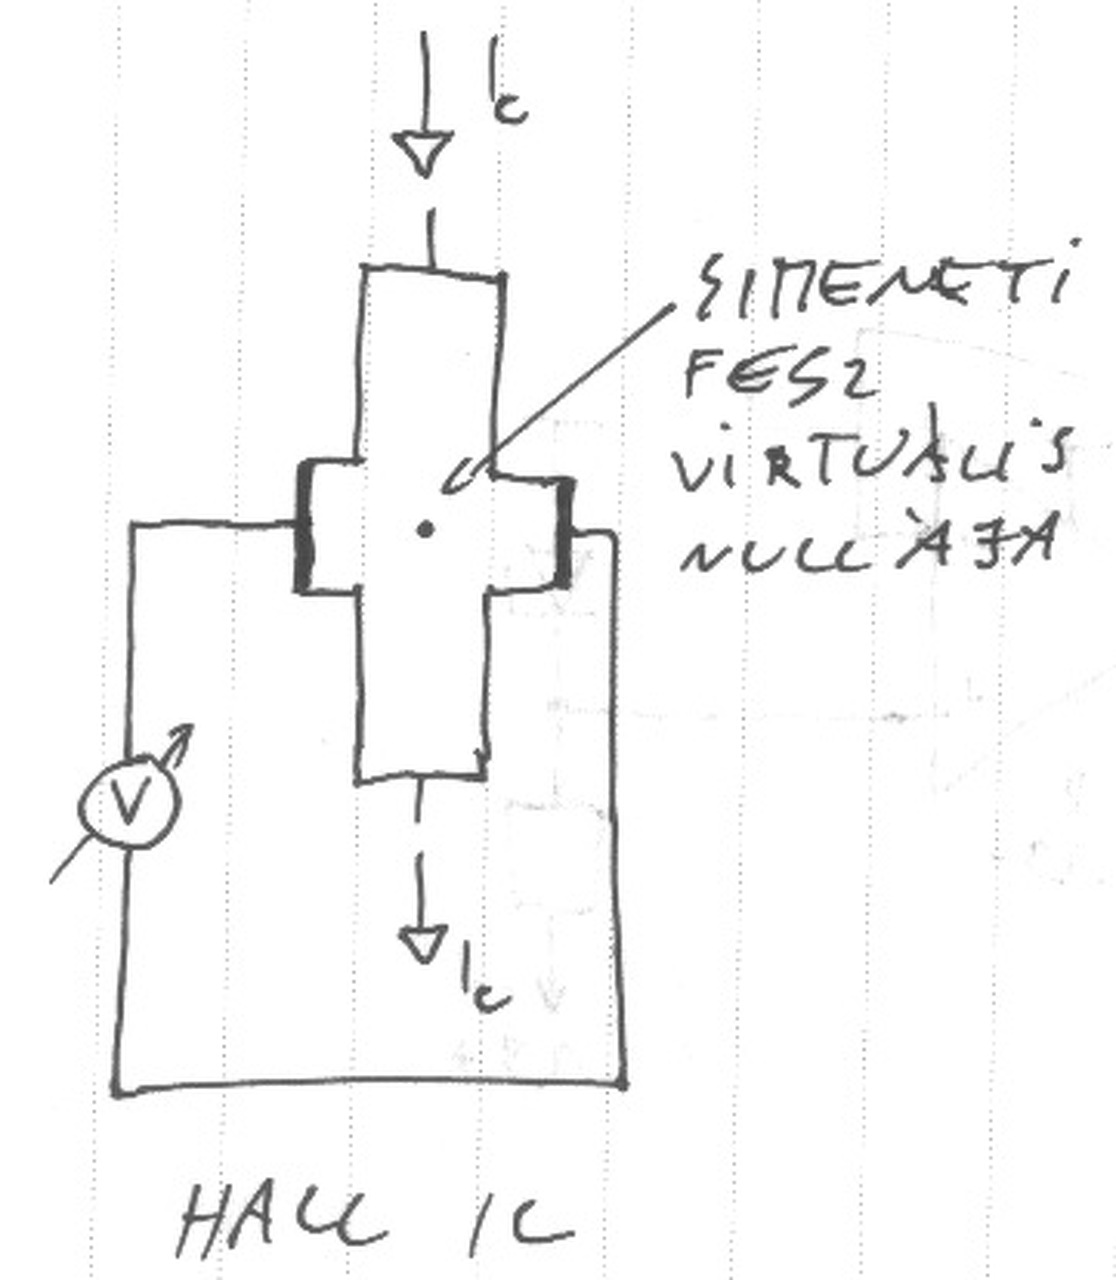 Ic
SIMENETI
FESZ
VIRTUÁLIS
NULLÁJA
V
Ic
HALL IC